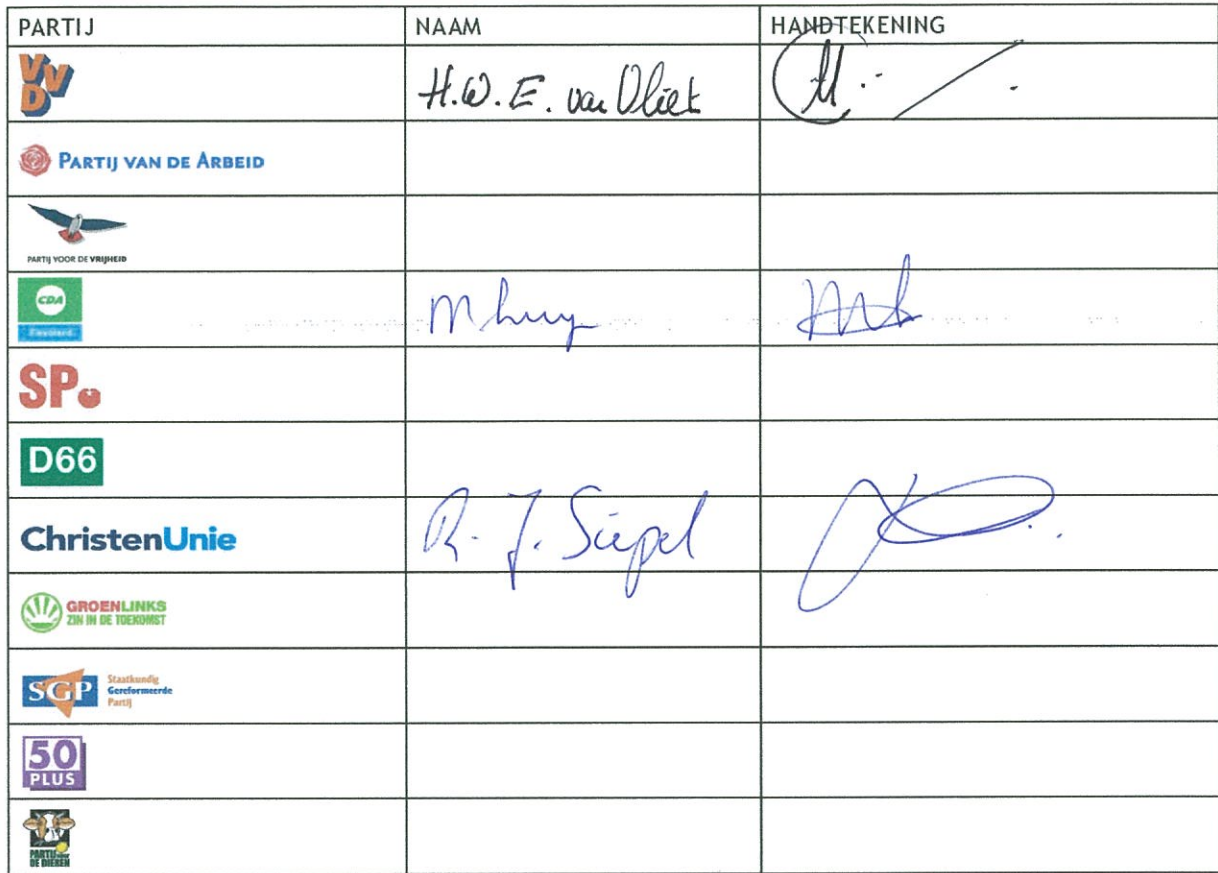 PARTIJ NAAM HANDTEKENING
VVD H.W.E. van Vliet
PARTIJ VAN DE ARBEID
PARTIJ VOOR DE VRIJHEID
CDA
Flevoland
SP
D66
ChristenUnie R. J. Siepel
GROENLINKS
ZIN IN DE TOEKOMST
SGP Staatkundig
Gereformeerde
Partij
50
PLUS
PARTIJ voor
DE DIEREN